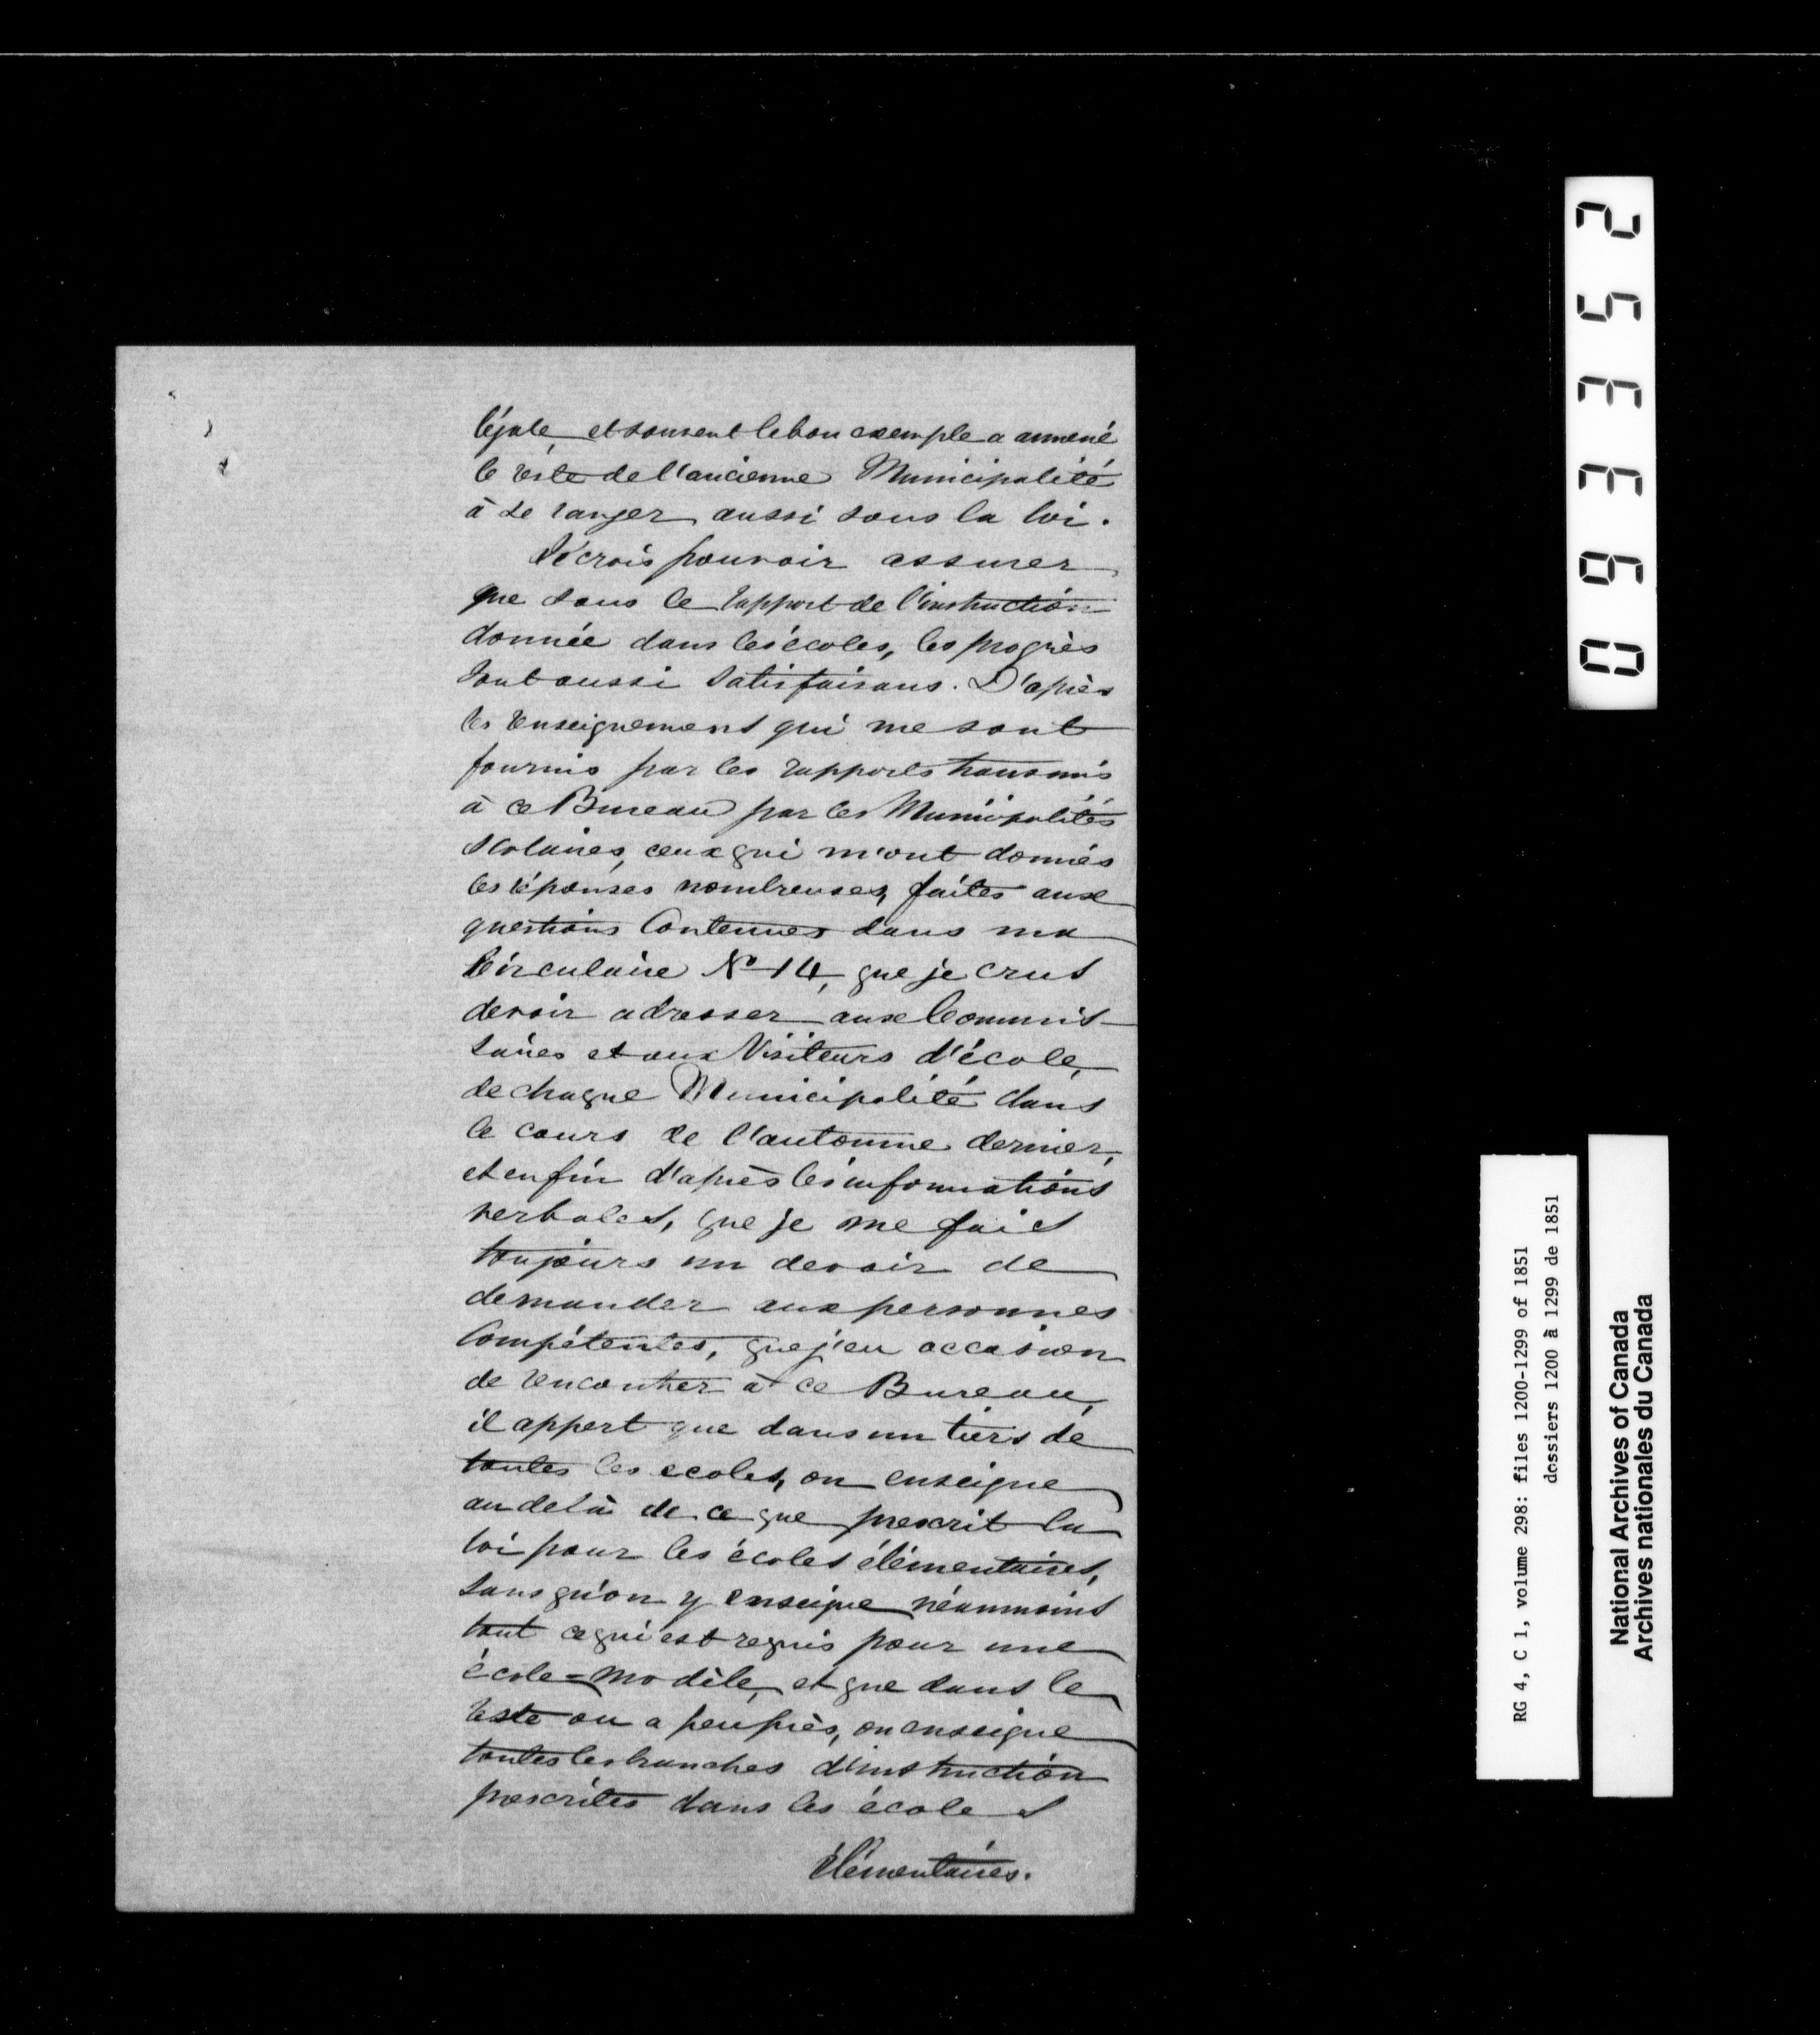 légale, et souvent le bon exemple a ammené
le reste de l'ancienne Municipalité
à se ranger aussi sous la loi.
Je crois pouvoir assurer
que sous le rapport de l'instruction
donnée dans les écoles, les progrès
sont aussi satisfaisans. D'après
les renseignements qui me sont
fournis par les rapports transmis
à ce Bureau par les Municipalités
Scolaires, ceux qui m'ont donnés
les réponses nombreuses, faites aux
questions Contenues dans ma
Circulaire No 14, que je crus
devoir adresser aux Commis-
saires et aux Visiteurs d'école,
de chaque Municipalité dans
le cours de l'automne dernier,
et enfin d'après les informations
verbales, que je me fais
toujours un devoir de
demander aux personnes
Compétentes, que j'eu occasion
de rencontrer à ce Bureau,
il appert que dans un tiers de
toutes les ecoles, on enseigne
au delà de ce que prescrit la
loi pour les écoles élémentaires,
sans qu'on y enseigne néanmoins
tout ce qui est requis pour une
école=modèle, et que dans le
reste ou a peu près, on enseigne
toutes les branches d'instruction
prescrites dans les écoles
Élémentaires.
093352
RG 4, C 1, volume 298: files 1200-1299 of 1851
dossiers 1200 à 1299 de 1851
National Archives of Canada
Archives nationales du Canada